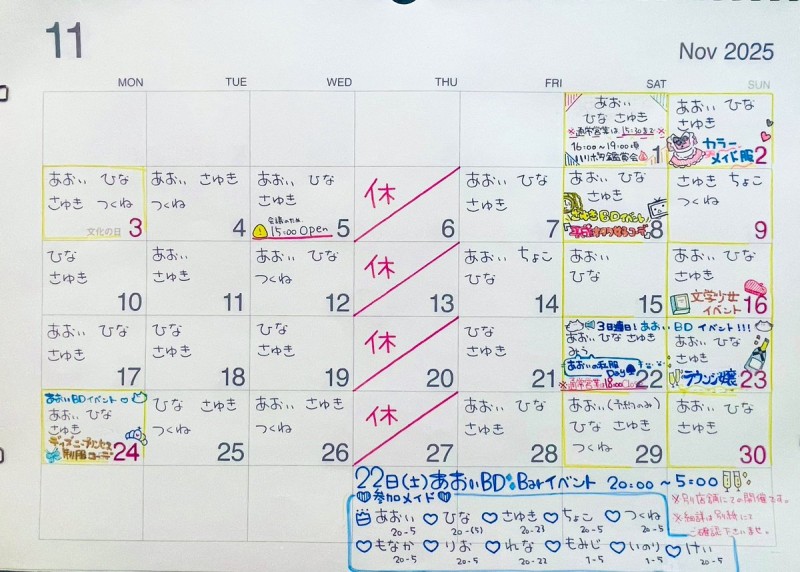 11
Nov 2025
MON TUE WED THU FRI SAT SUN
あおい
ひな さゆき
※通常営業は15:30まで※
16:00〜19:00頃
ハリポタ鑑賞会
1
あおい ひな
さゆき
カラー
メイド服
2
あおい ひな
さゆき つくね
文化の日
3
あおい さゆき
つくね
4
あおい ひな
さゆき
会議のため
15:00 Open
5
休
6
あおい ひな
さゆき
7
あおい ひな
さゆき
さゆきBDイベント
8
さゆき ちょこ
つくね
9
ひな
さゆき
10
あおい
さゆき
11
あおい ひな
つくね
12
休
13
あおい ちょこ
ひな
14
あおい
ひな
15
あおい ひな
さゆき
文学少女
イベント
16
あおい ひな
さゆき
17
ひな
さゆき
18
ひな
さゆき
19
休
20
ひな
さゆき
21
3日連日!あおいBDイベント!!!
あおい ひな さゆき
みう
あおいの私服
Day
※通常営業は18:00Close
22
あおい ひな
さゆき
ラウンジ嬢
23
あおいBDイベント
あおい ひな
さゆき
ディズニープリンセス
制服コーデ
24
ひな さゆき
つくね
25
あおい さゆき
つくね
26
休
27
あおい ひな
さゆき
28
あおい(予約のみ)
ひな さゆき
つくね
29
あおい ひな
さゆき
30
22日(土)あおいBD Barイベント 20:00〜5:00
参加メイド
あおい ひな さゆき ちょこ つくね
20-5 20-(5) 20-23 20-5 20-5
もなか りお れな もみじ いのり けい
20-5 20-5 20-22 1-5 1-5 20-5
※別店舗にての開催です。
※詳細は別紙にて
ご確認下さいませ。